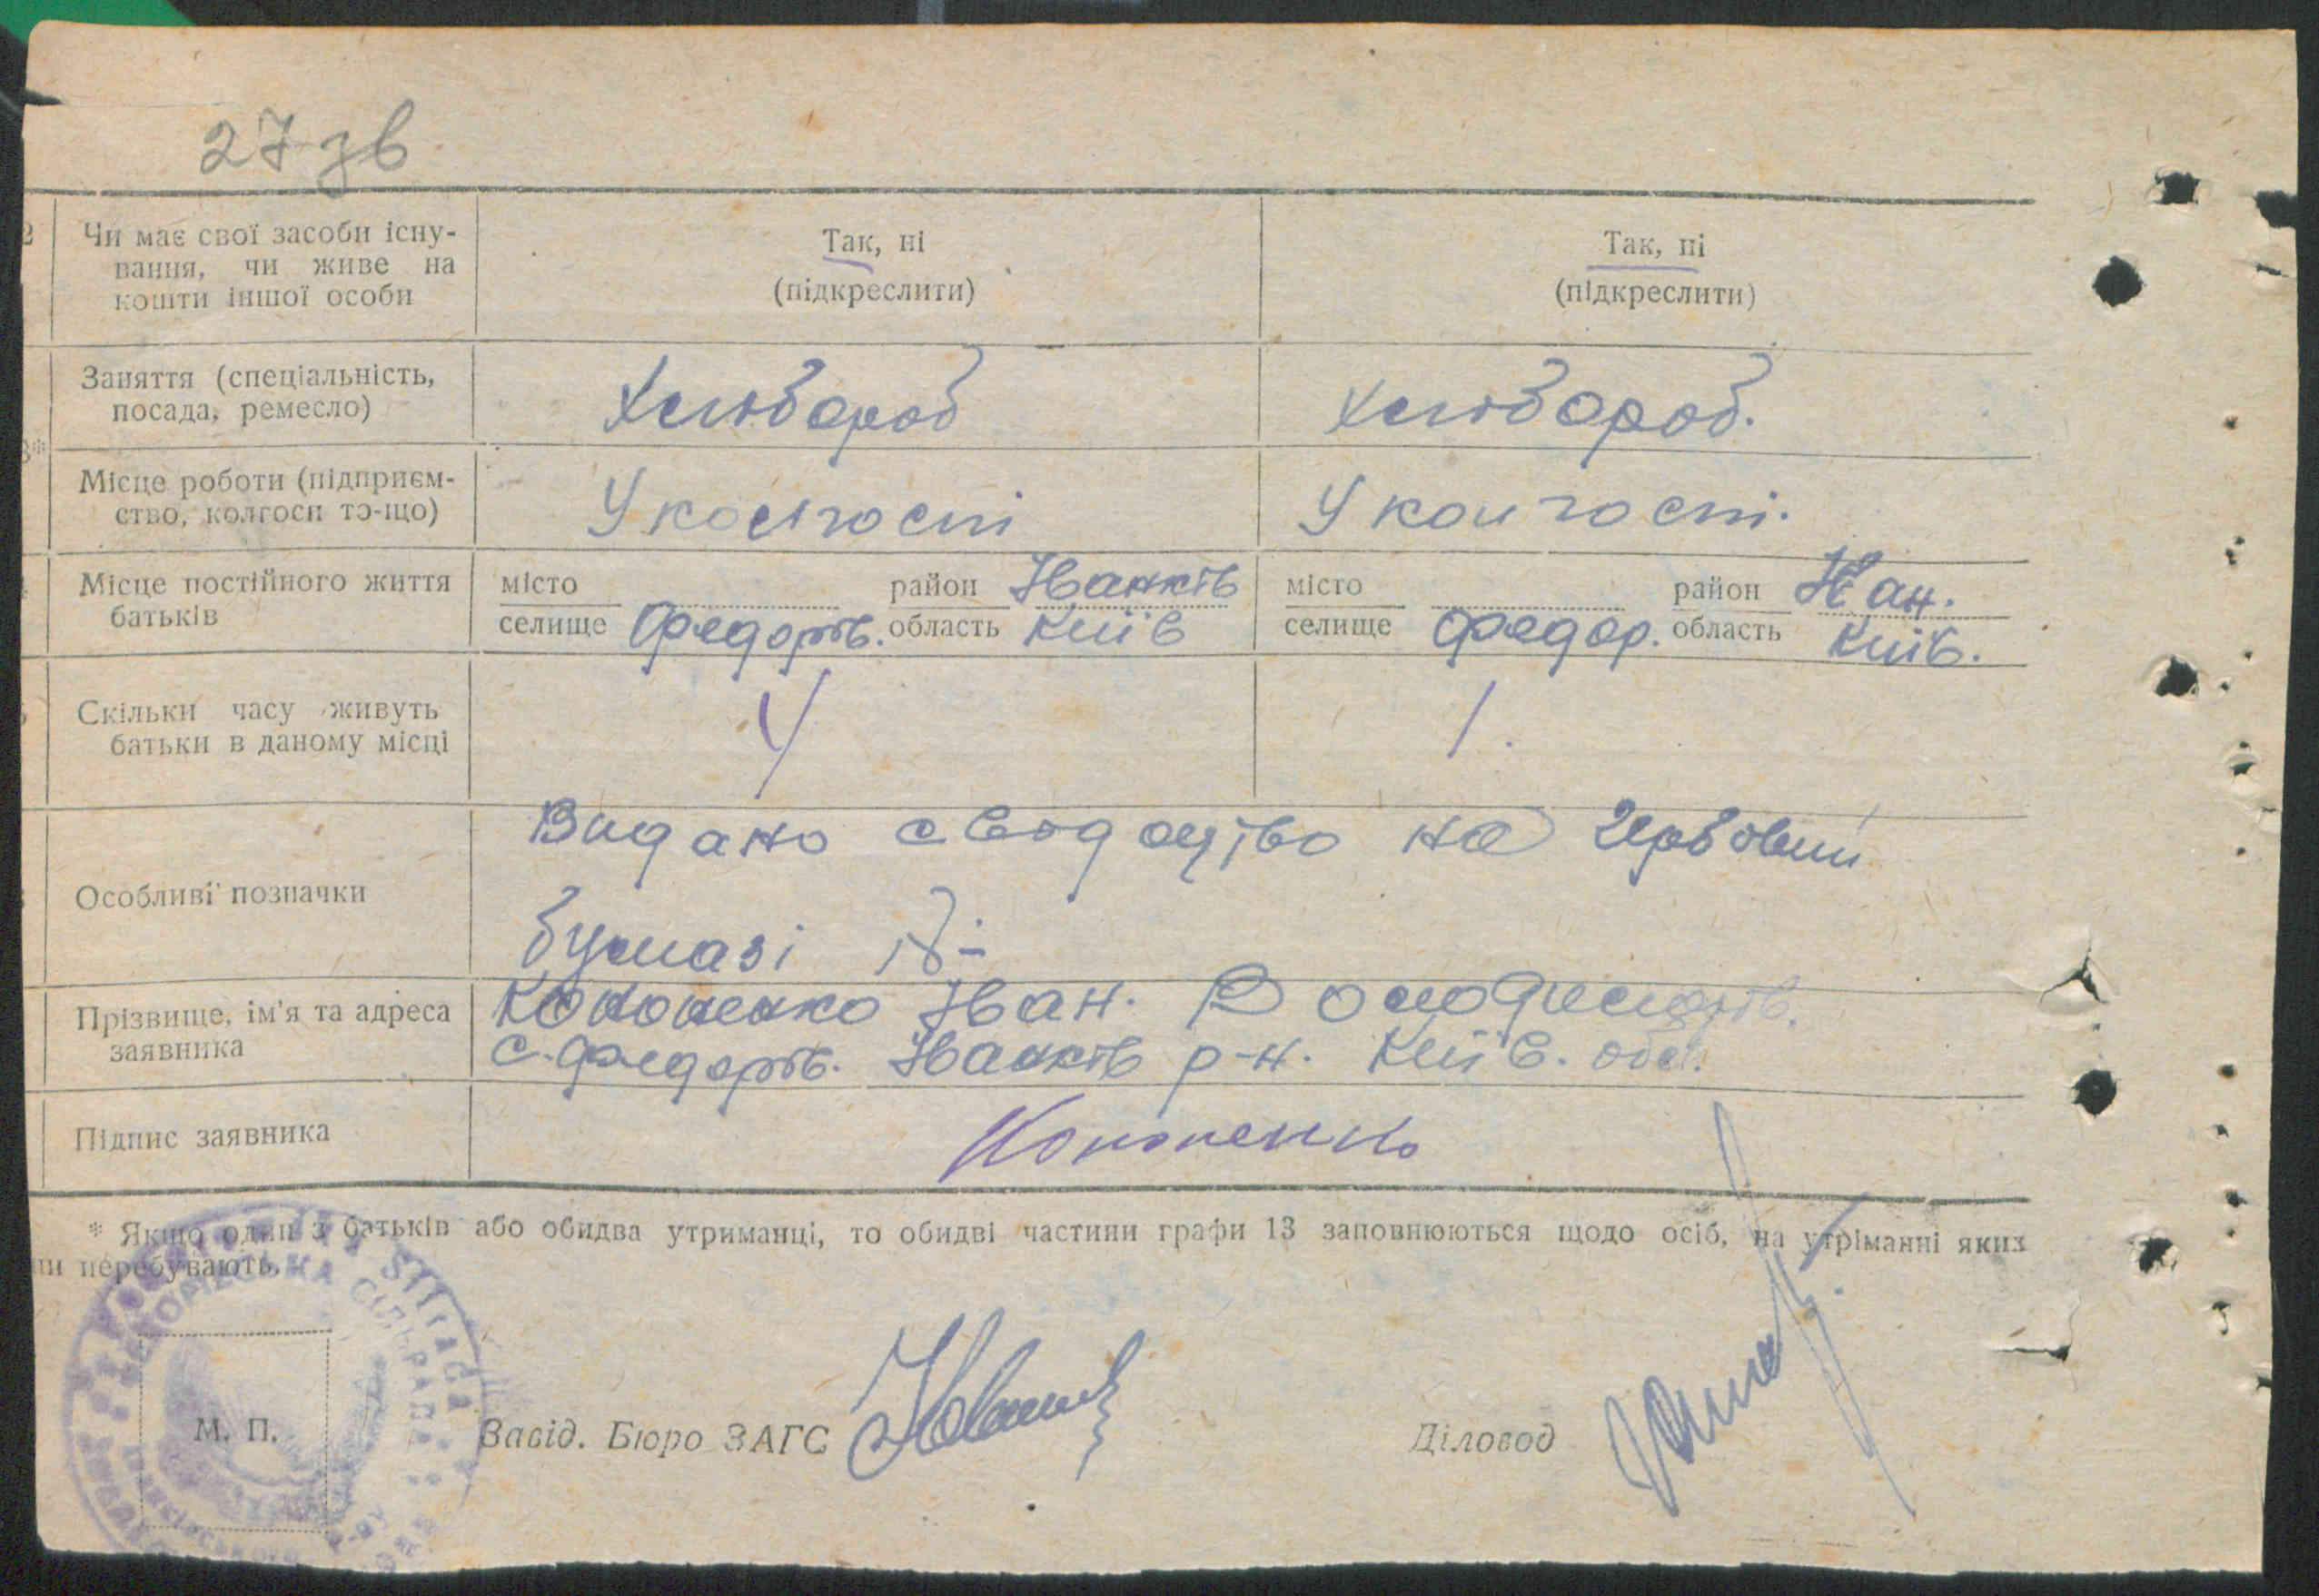 27 зв
2 Чи має свої засоби існу-
вання, чи живе на
кошти іншої особи
Так, ні
(підкреслити)
Так, ні
(підкреслити)
Заняття (спеціальність,
посада, ремесло)
Хлібороб
Хлібороб.
3*
Місце роботи (підприєм-
ство, колгосп то-що)
У колгоспі
У колгоспі.
Місце постійного життя
батьків
місто район Іванків
селище Федорів. область Київ
місто район Іван.
селище Федор. область Київ.
Скільки часу живуть
батьки в даному місці
Особливі позначки
Видано свідоцтво на гербовий
бумазі
Прізвище, ім'я та адреса
заявника
Кононенко Іван.
с. Федорів. Іванків р-н. Київ. обл.
Підпис заявника
Кононенко
* Якщо один з батьків або обидва утриманці, то обидві частини графи 13 заповнюються щодо осіб, на утріманні яких
ни перебувають.
М. П.
Завід. Бюро ЗАГС
Діловод